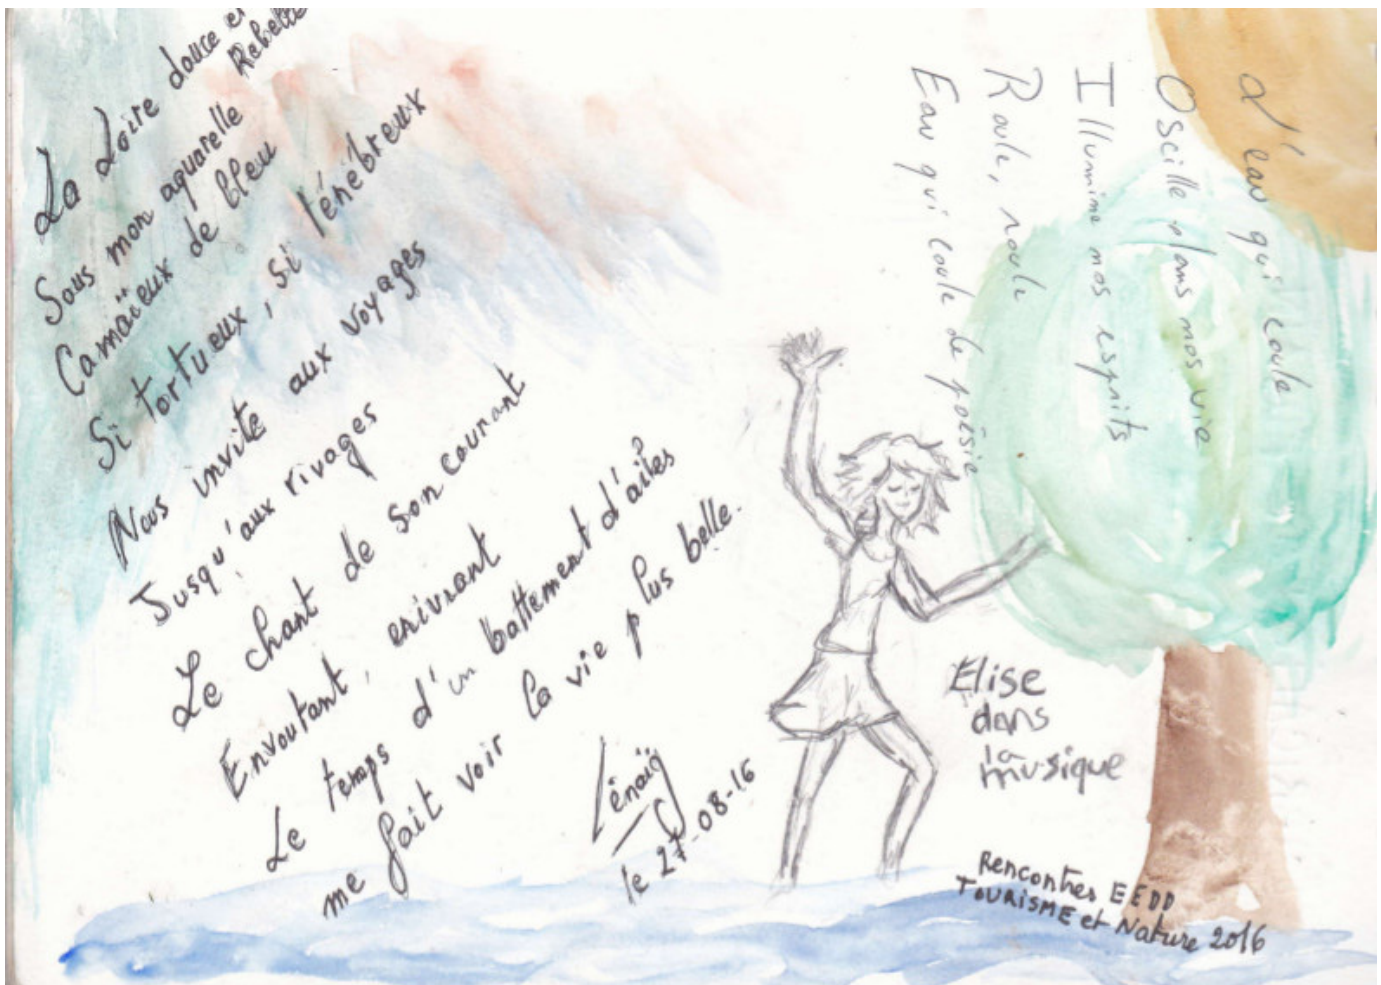 La Loire douce et
Rebelle
Sous mon aquarelle
Camaïeux de bleu
Si tortueux, si ténébreux
Nous invite aux voyages
Jusqu'aux rivages
Le chant de son courant
Envoutant, enivrant
Le temps d'un battement d'ailes
me fait voir la vie plus belle.
Lénaïg
le 27-08-16
L'eau qui coule
Oscille dans nos vie
Illumine nos esprits
Roule, roule
Eau qui coule de poésie
Elise
dans
la
musique
Rencontres EEDD
TOURISME et Nature 2016